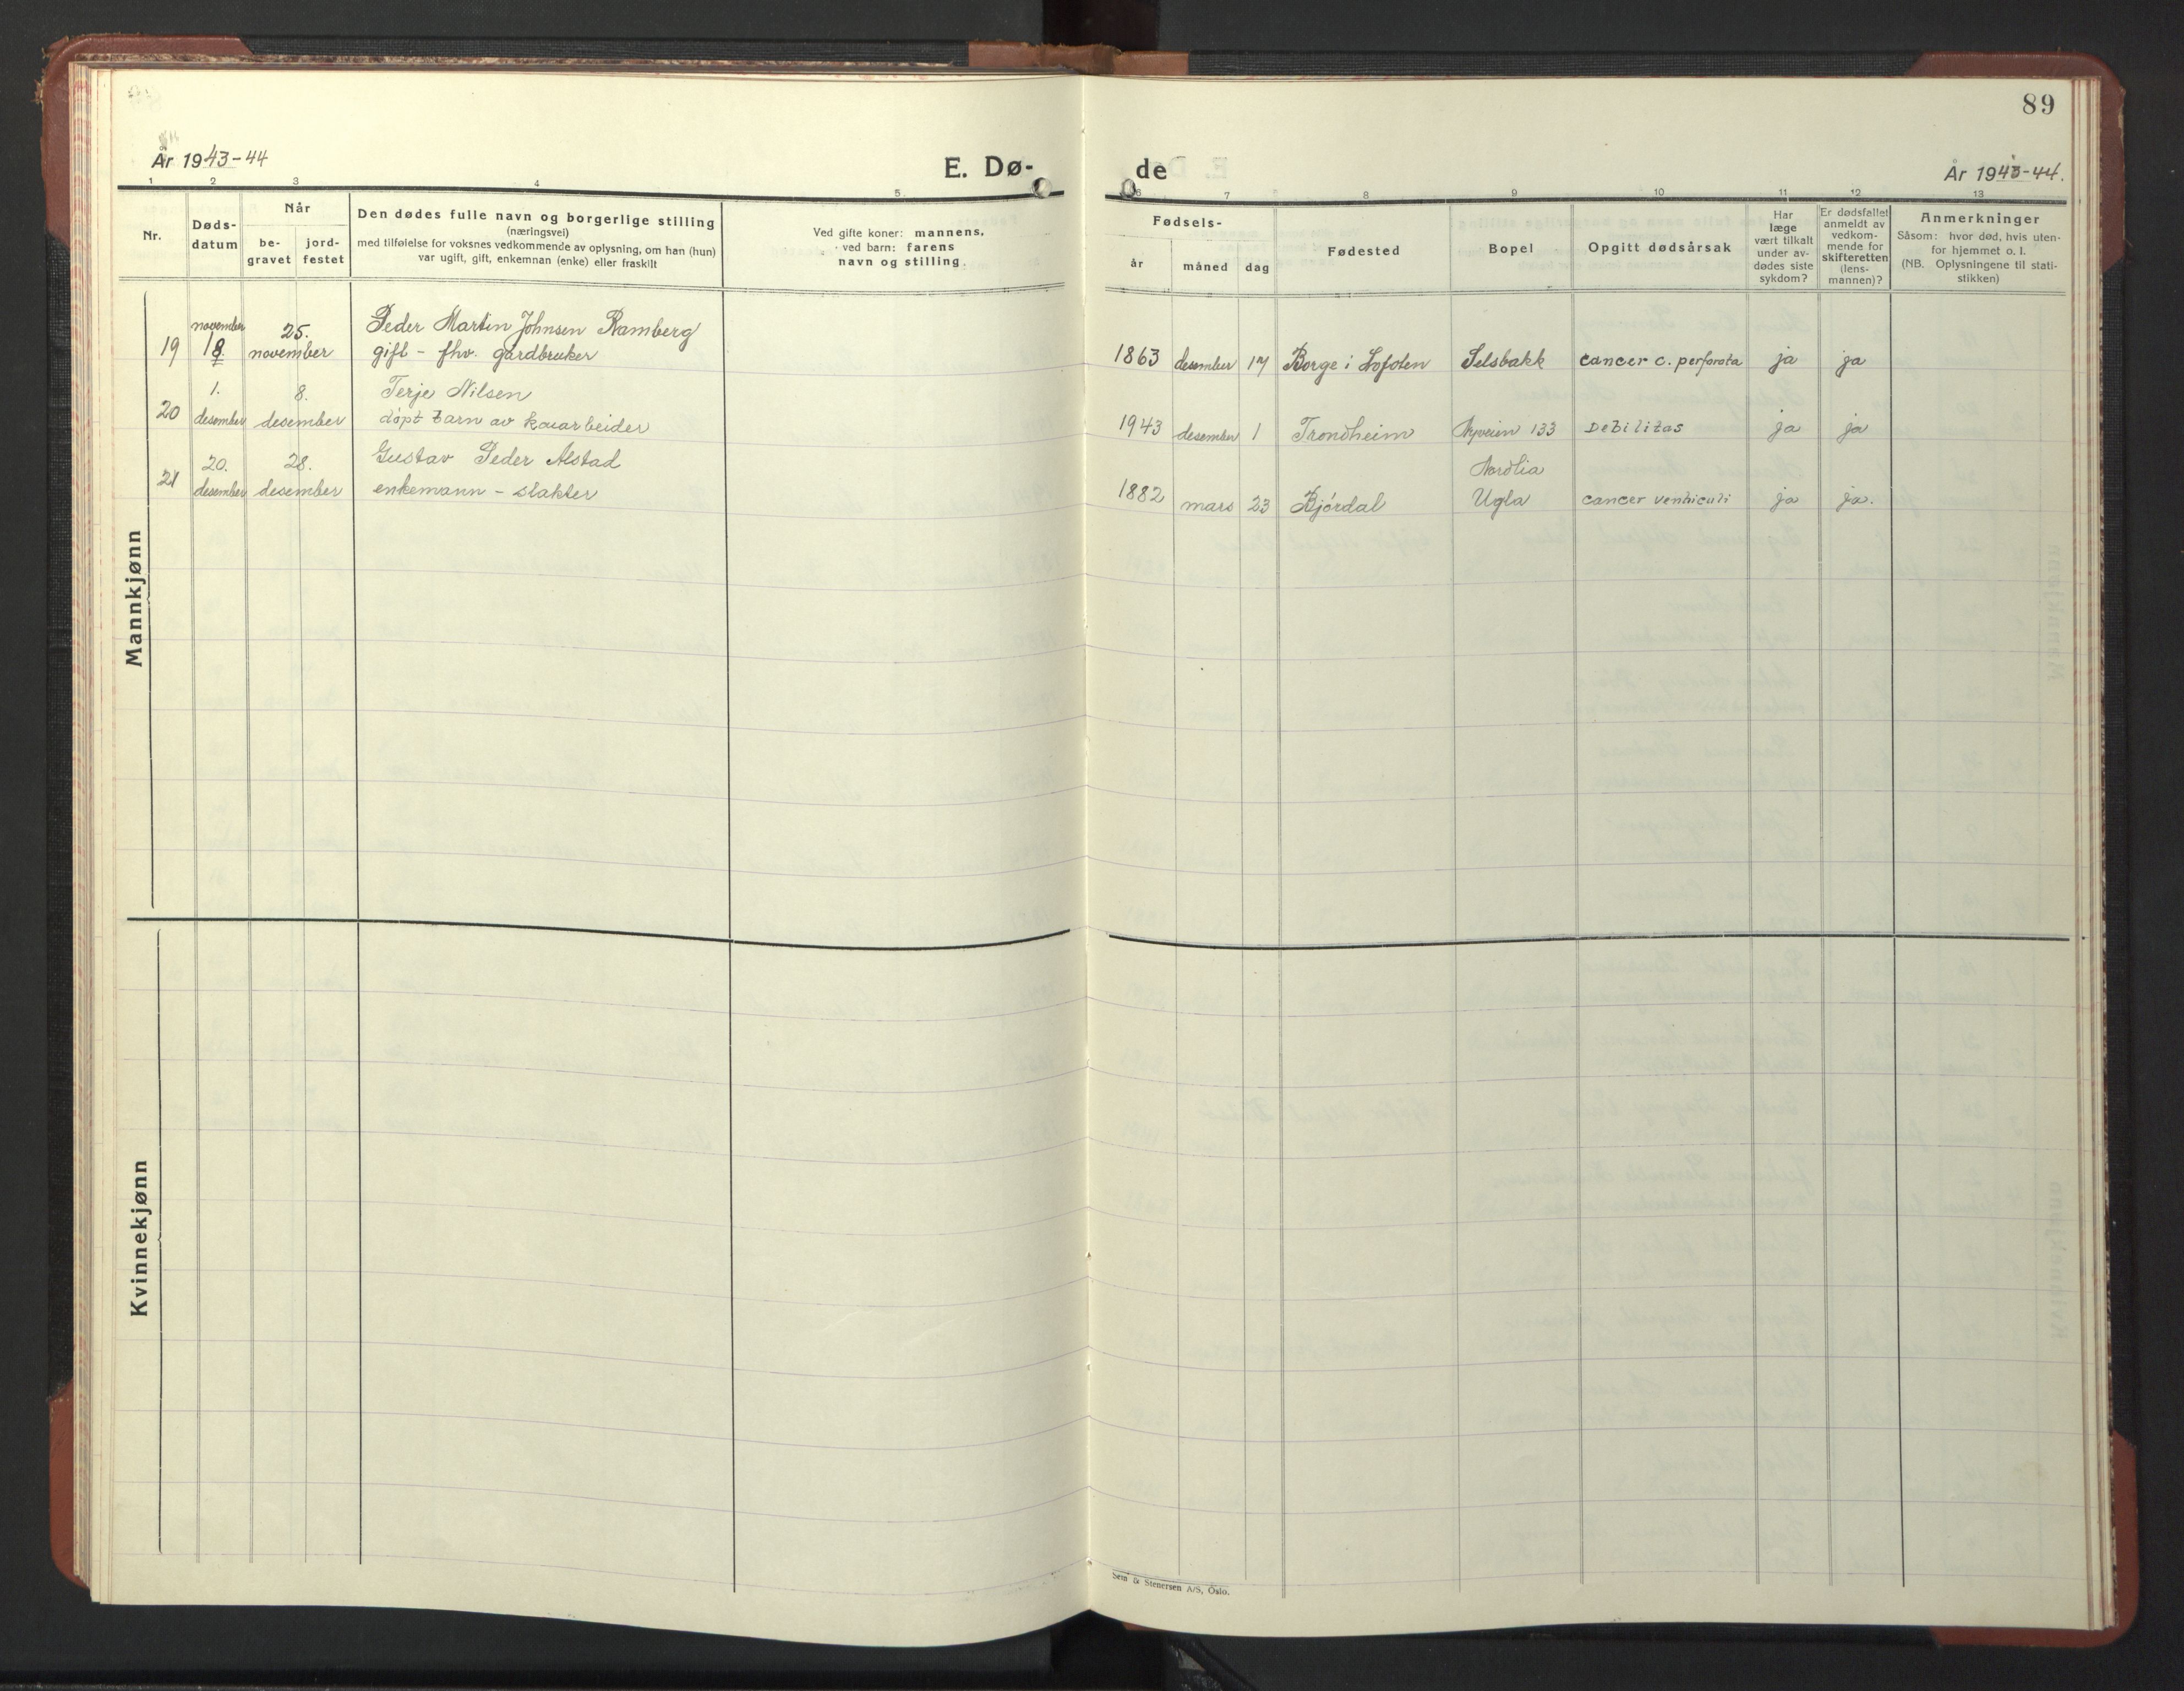 89
År 1943-44
E. Dø-
de
År 1943-44.
1 2 3 4 5
6 7 8 9 10 11 12 13
Nr.
Døds-
datum
Når
be-
gravet
jord-
festet
Den dødes fulle navn og borgerlige stilling
(næringsvei)
med tilføielse for voksnes vedkommende av oplysning, om han (hun)
var ugift, gift, enkemnan (enke) eller fraskilt
Ved gifte koner: mannens,
ved barn: farens
navn og stilling.
Fødsels-
år
måned
dag
Fødested
Bopel
Opgitt dødsårsak
Har
læge
vært tilkalt
under av-
dødes siste
sykdom?
Er dødsfallet
anmeldt av
vedkom-
mende for
skifteretten
(lens-
mannen)?
Anmerkninger
Såsom: hvor død, hvis uten-
for hjemmet o. l.
(NB. Oplysningene til stati-
stikken)
Mannkjønn
november 25. Peder Martin Johnsen Ramberg
19 18. november gift - fhv. gårdbruker 1863 desember 17 Borge i Lofoten Selsbakk cancer c. perforata ja ja
1. 8. Terje Nilsen
20 desember desember døpt barn av kaiarbeider 1943 desember 1 Trondheim Nyveien 133 Debilitas ja ja
20. 28. Gustav Peder Alstad Nordlia
21 desember desember enkemann - slakter 1882 mars 23 Bjørdal Ugla cancer ventriculi ja ja.
Kvinnekjønn
Sem & Stenersen A/S, Oslo.